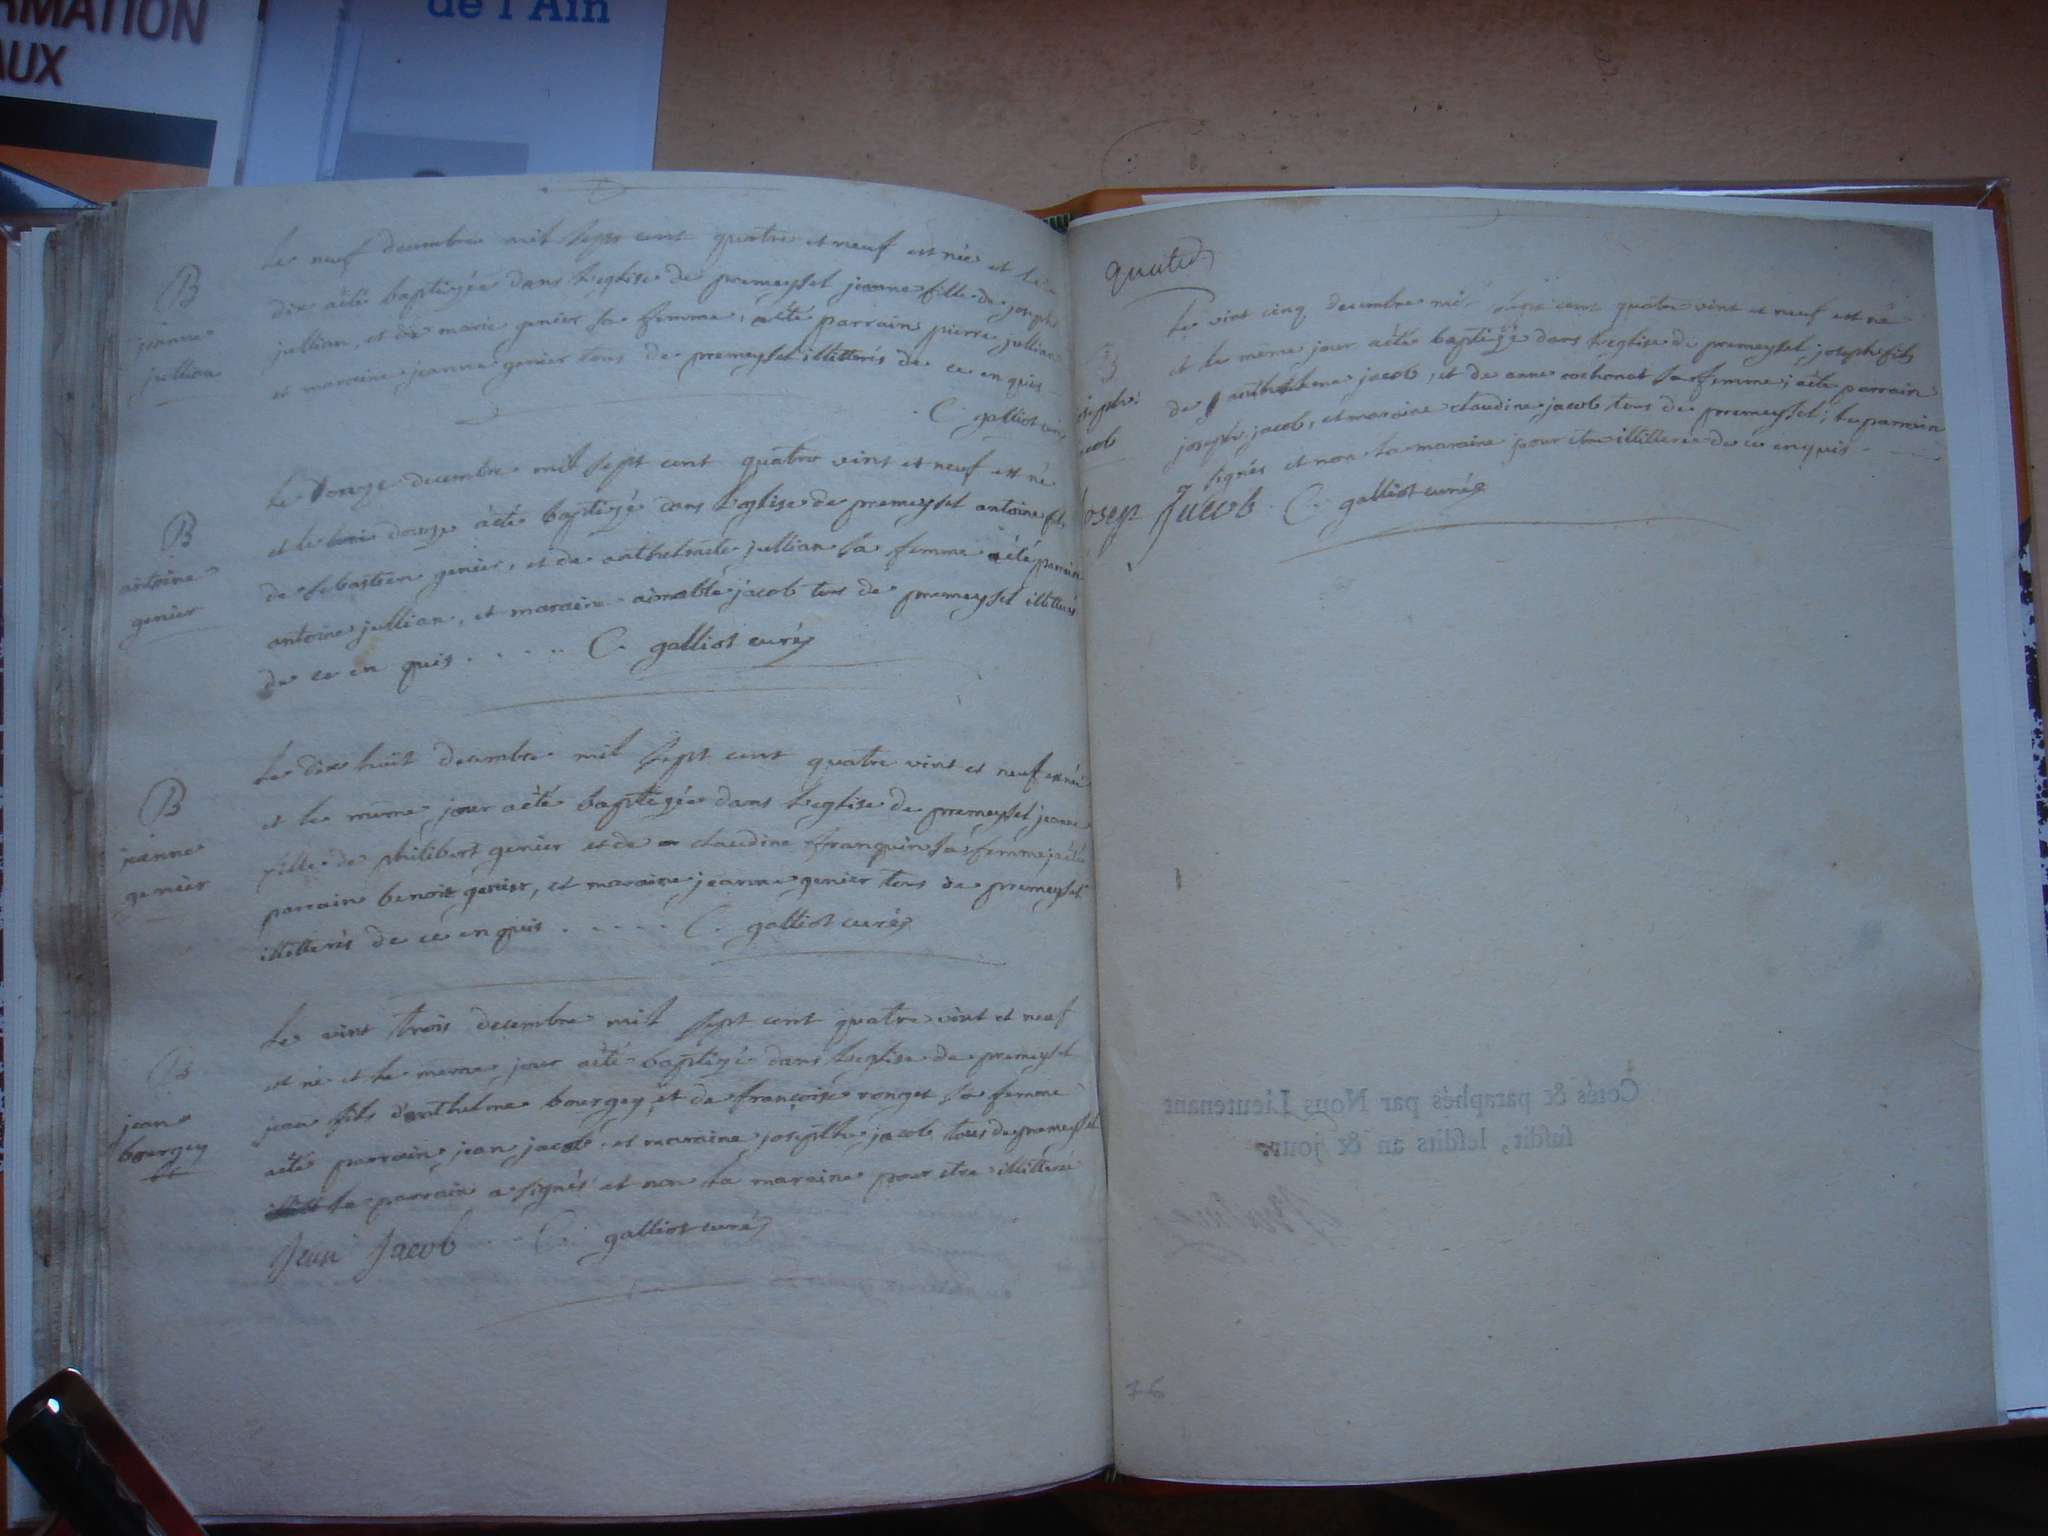 RMATION
AUX
de l'Ain
Le neuf decembre mil sept cent quatre et neuf est née et le
dix aêté baptizée dans l'eglise de premeyssel jeanne fille de joseph
jullian, et de marie genier sa femme, aêté parrain pierre jullian
et maraine jeanne genier tous de premeyssel illitterés de ce enquis
C. galliot curé
B
jeanne
jullian
Le onze decembre mil sept cent quatre vint et neuf est né
et le douze aêté baptizé dans l'eglise de premeyssel antoine fils
de sebastien genier, et de anthelmette jullian sa femme aêté parrain
antoine jullian, et maraine aimable jacob tous de premeyssel illitterés
de ce en quis . . . . . C. galliot curé
B
antoine
genier
Le dix huit decembre mil sept cent quatre vint et neuf est née
et le même jour aêté baptizée dans l'eglise de premeyssel jeanne
fille de philibert genier et de claudine franquin sa femme, aêté
parrain benoit genier, et maraine jeanne genier tous de premeyssel
illitterés de ce enquis . . . . . C. galliot curé
B
jeanne
genier
Le vint trois decembre mil sept cent quatre vint et neuf
est né et le meme jour aêté baptizé dans l'eglise de premeyssel
jean fils d'anthelme bourgey et de françoise ronget sa femme
aêté parrain jean jacob et maraine josephte jacob tous de premeyssel
le parrain a signés et non la maraine pour etre illitterée
Jean Jacob C. galliot curé
B
jean
bourgey
Le vint cinq decembre mil sept cent quatre vint et neuf est né
et le même jour aêté baptizé dans l'eglise de premeyssel joseph fils
de anthelme jacob, et de anne cochonat sa femme; aêté parrain
joseph jacob, et maraine claudine jacob tous de premeyssel; le parrain
a signés et non la maraine pour etre illitterée de ce enquis
Josep Jacob C. galliot curé
B
joseph
jacob
Cotés & paraphés par Nous Lieutenant
susdit, lesdits an & jour.
76